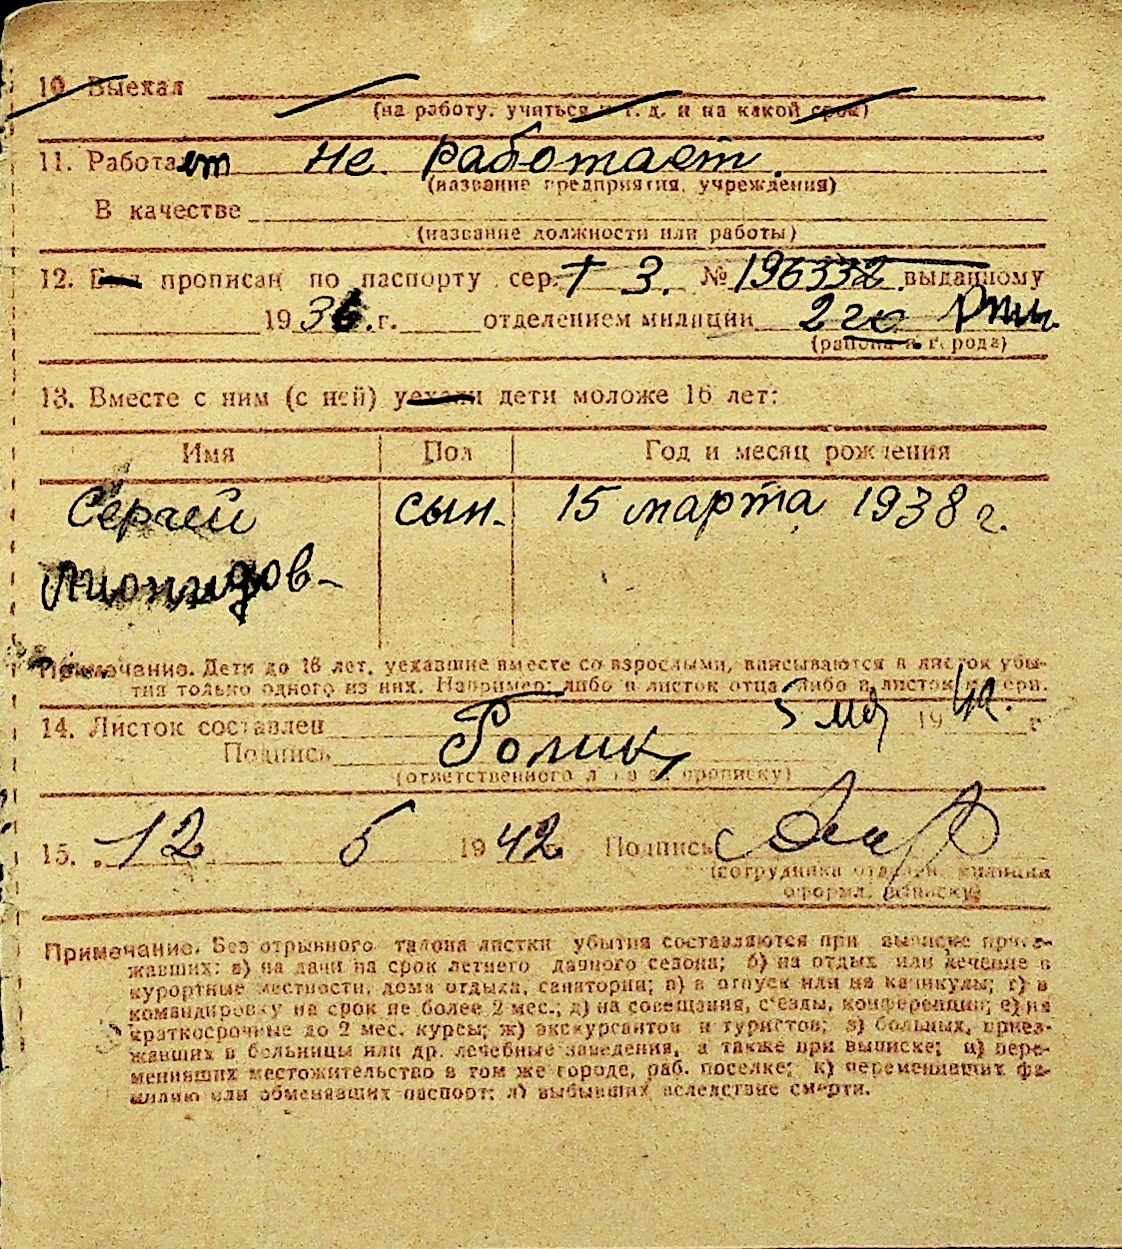 10. Выехал
(на работу, учиться и т. д. и на какой срок)
11. Работает не работает.
(название предприятия, учреждения)
В качестве
(название должности или работы)
12. Был прописан по паспорту сер. Т З. № 196332 выданному
1936.г. отделением милиции 2го
(района и города)
13. Вместе с ним (с ней) уехали дети моложе 16 лет:
Имя Пол Год и месяц рождения
Сергей сын. 15 марта 1938 г.
Примечание. Дети до 16 лет, уехавшие вместе со взрослыми, вписываются в листок убы-
тия только одного из них. Например: либо в листок отца, либо в листок матери.
14. Листок составлен 5 мая 1942. г.
Подпись
(ответственного лица за прописку)
15. 12 5 1942 Подпись
(сотрудника отделен. милиции
оформл. выписку)
Примечание. Без отрывного талона листки убытия составляются при выписке приез-
жавших: а) на дачи на срок летнего дачного сезона; б) на отдых или лечение в
курортные местности, дома отдыха, санатории; в) в отпуск или на каникулы; г) в
командировку на срок не более 2 мес.; д) на совещания, съезды, конференции; е) на
краткосрочные до 2 мес. курсы; ж) экскурсантов и туристов; з) больных, приез-
жавших в больницы или др. лечебные заведения, а также при выписке; и) пере-
менивших местожительство в том же городе, раб. поселке; к) переменивших фа-
милию или обменявших паспорт; л) выбывших вследствие смерти.